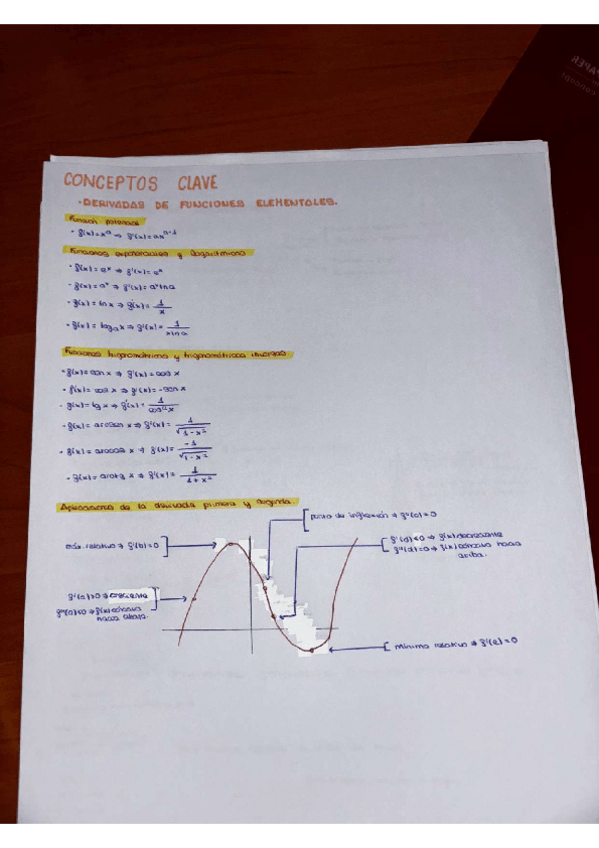 CONCEPTOS CLAVE
· DERIVADAS DE FUNCIONES ELEMENTALES.
Función potencial
· f(x)=xᵃ ⇒ f'(x)=axᵃ⁻¹
Funciones exponenciales y logarítmica
· f(x)=aˣ ⇒ f'(x)=aˣ
· f(x)=aˣ ⇒ f'(x)=aˣ lna
· f(x)=lnx ⇒ f'(x)= 1/x
· f(x)=logₐx ⇒ f'(x)= 1/xlna
Funciones trigonométrica y trigonométricas inversas
· f(x)=sen x ⇒ f'(x)=cos x
· f(x)=cos x ⇒ f'(x)=-sen x
· f(x)=tg x ⇒ f'(x)= 1/cos²x
· f(x)=arcsen x ⇒ f'(x)= 1/√1-x²
· f(x)=arccos x ⇒ f'(x)= -1/√1-x²
· f(x)=arctg x ⇒ f'(x)= 1/1+x²
Aplicaciones de la derivada primera y segunda.
punto de inflexión ⇒ f''(c)=0
máx relativo ⇒ f'(b)=0
f'(d)<0 ⇒ f(x) decreciente
f''(d)=0 ⇒ f(x) cóncava hacia
arriba.
f'(a)>0 ⇒ creciente
f''(a)<0 ⇒ f(x) cóncava
hacia abajo.
mínimo relativo ⇒ f'(e)=0